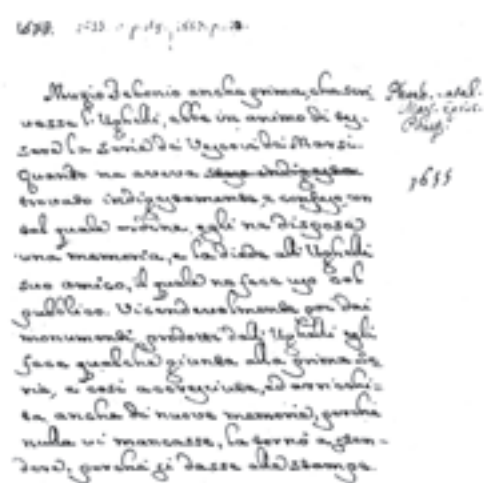 Muzio Febonio anche prima, che scri
vesse l'Ughelli, ebbe in animo di tes-
sere la serie de' Vescovi de' Marsi.
Quanto ne aveva
trovato indigestamente, e confuso, con
tal quale ordine, egli ne dispose
una memoria, e la diede all'Ughelli
suo amico, il quale ne fece uso col
pubblico. Vicendevolmente poi dai
monumenti prodotti dall'Ughelli egli
fece qualche giunta alla prima se
rie, e così accresciuta, ed arricchi-
ta anche di nuove memorie, perchè
nulla vi mancasse, la tornò a sten-
dere, perchè si desse alle stampe.
Phoeb. Catal.
1655